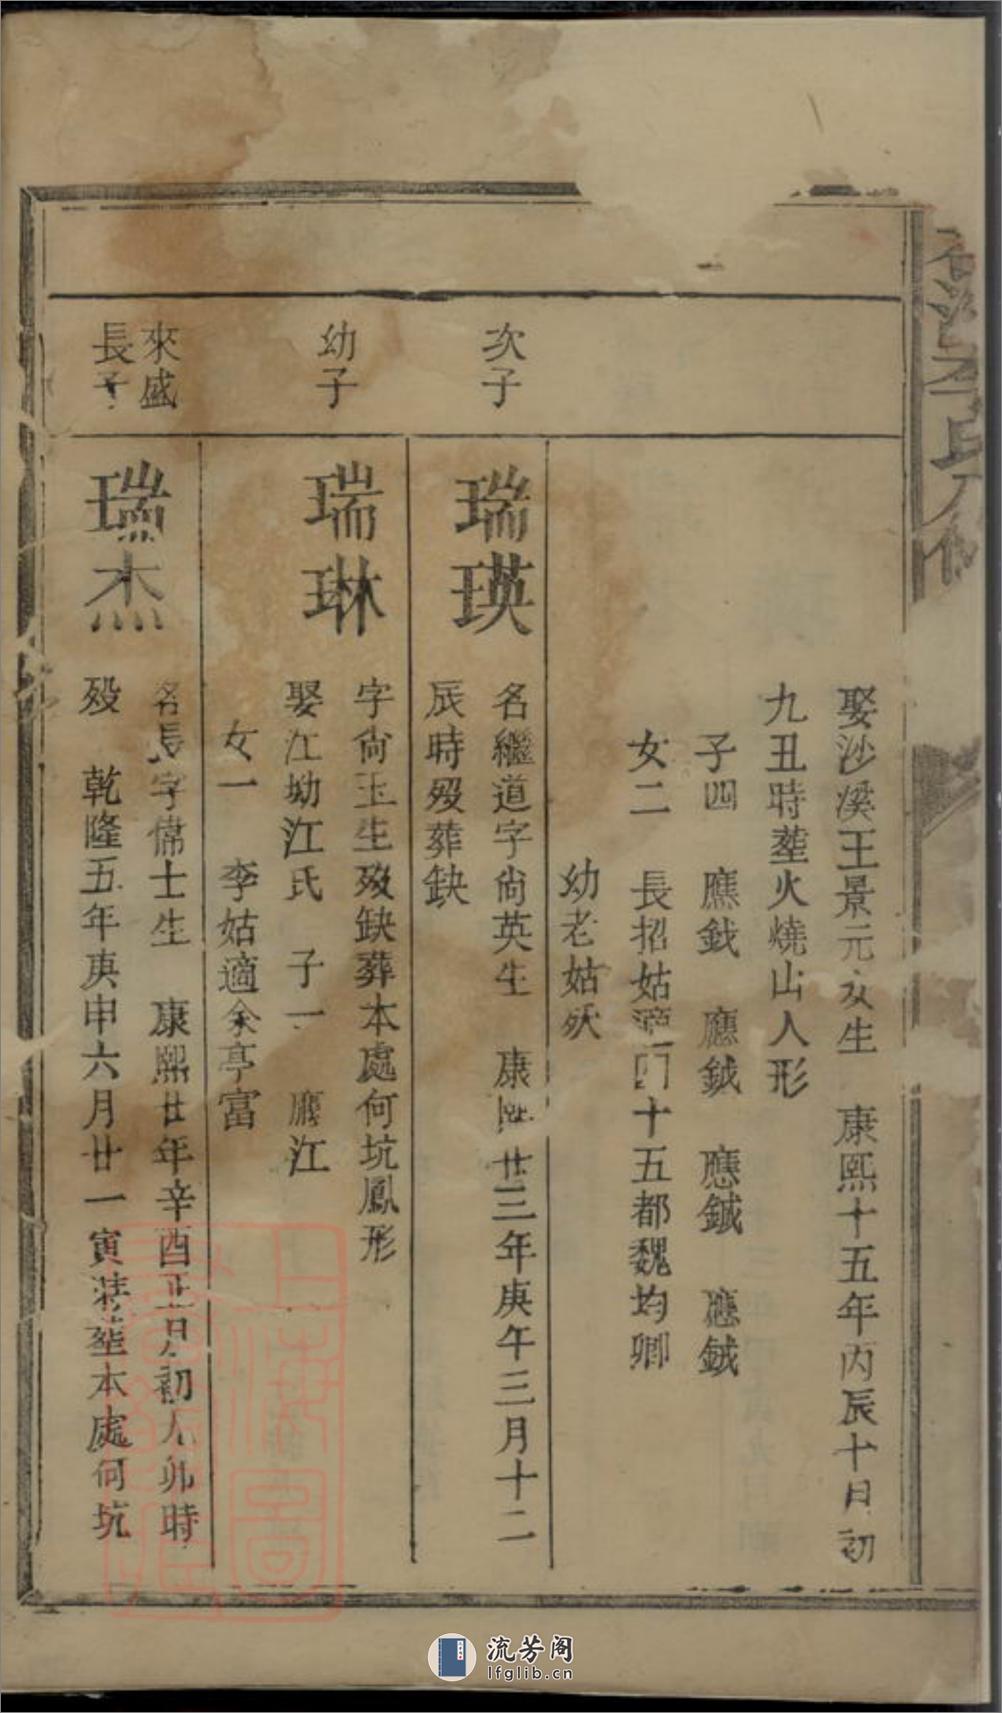 娶沙溪王景元女生　康熙十五年丙辰十月初
九丑時塟火燒山人形
子四　應鈛　應鉞　應鋮　應鋮
女二　長招姑適四十五都魏均卿
幼老姑殀
次子
瑞瑛
名繼道字尙英生　康熙廿三年庚午三月十二
辰時歿葬缺
幼子
瑞琳
字尙玉生歿缺葬本處何坑鳳形
娶江坳江氏　子一　應江
女一　李姑適余亭富
來盛
長子
瑞杰
名長字偉士生　康熙廿年辛酉正月初八卯時
歿　乾隆五年庚申六月廿一寅時塟本處何坑
上海圖
流芳阁
lfglib.cn